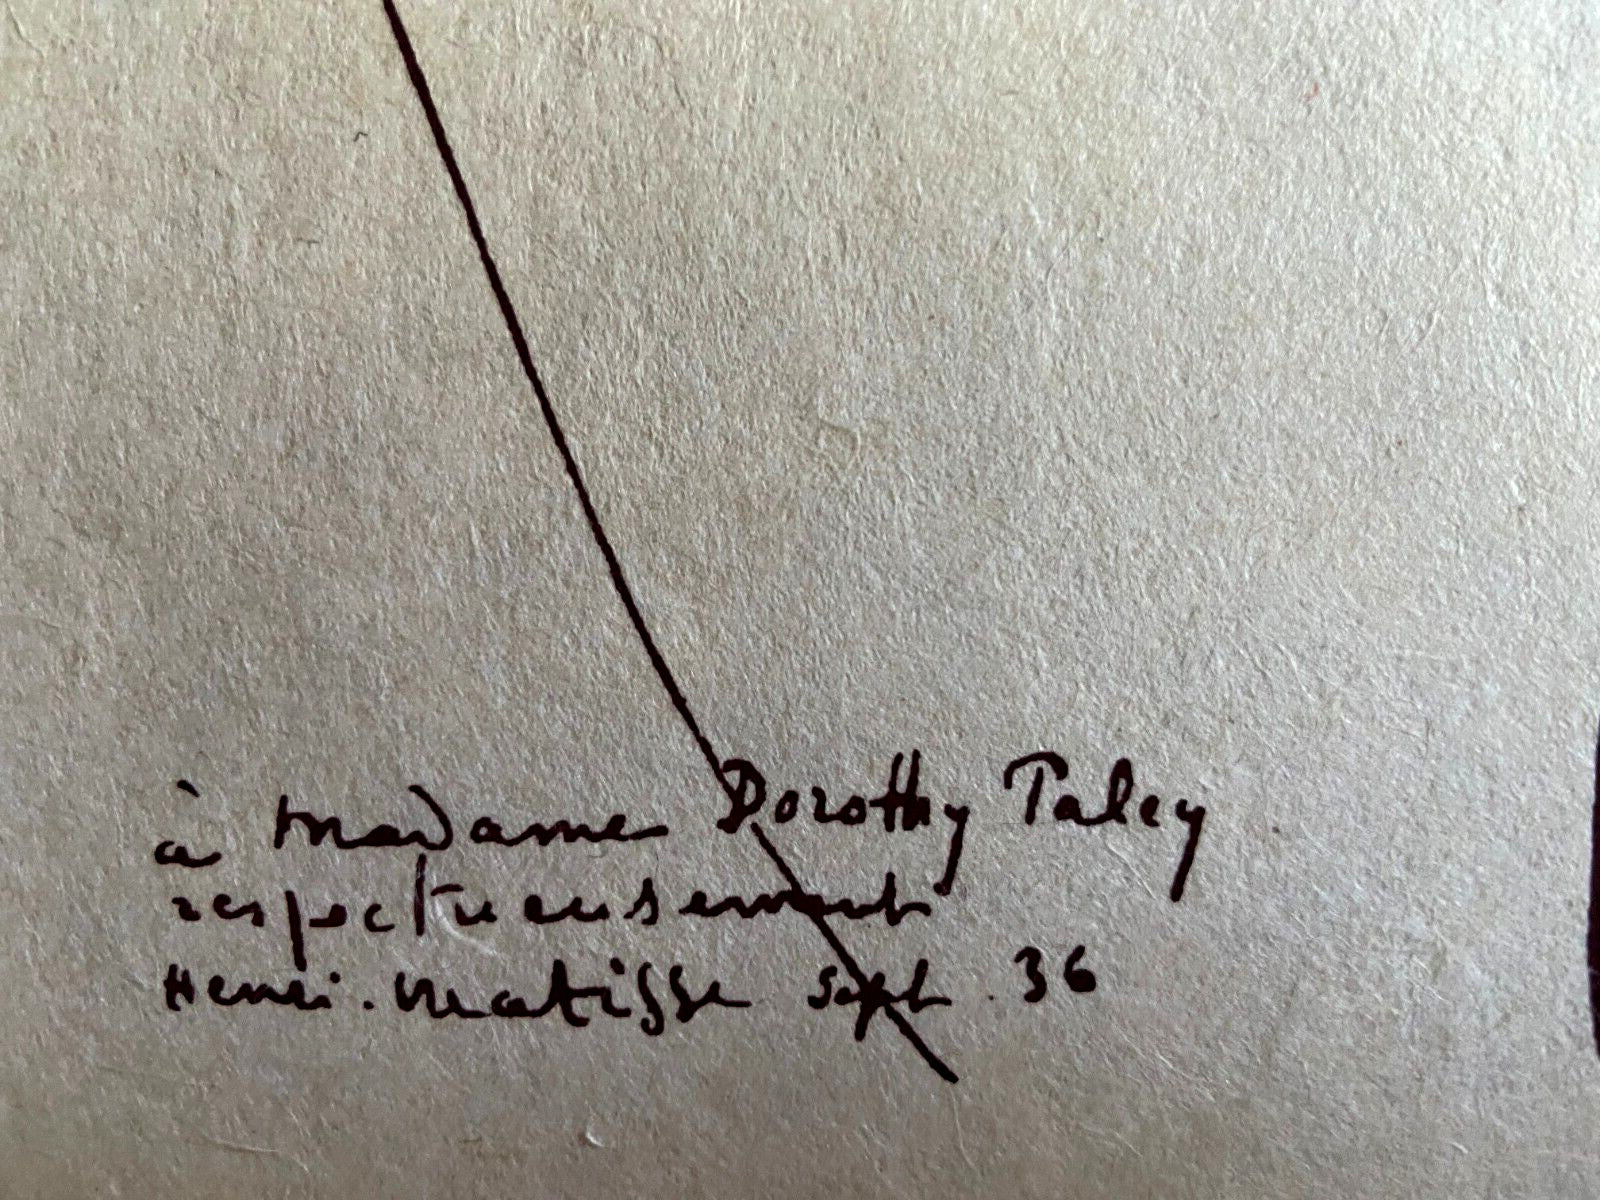 à Madame Dorothy Paley
respectueusement
Henri. Matisse sept. 36